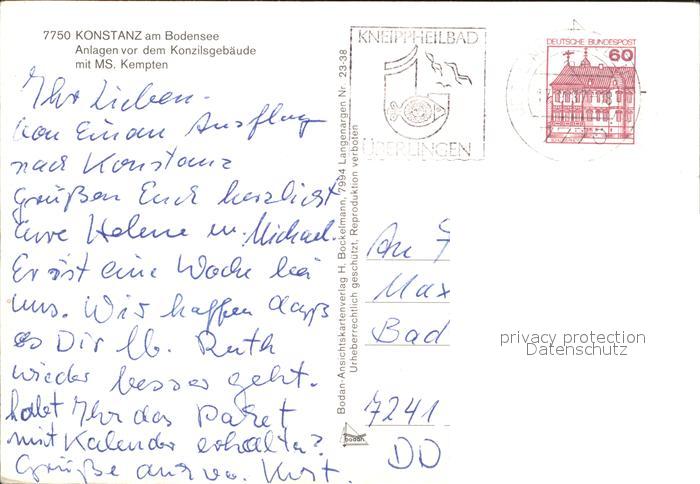 7750 KONSTANZ am Bodensee
Anlagen vor dem Konzilsgebäude
mit MS. Kempten
Ihr Lieben -
Von Einem Ausflug
nach Konstanz
grüßen Euch herzlichst
Eure Helene u. Michael.
Er ist eine Woche bei
uns. Wir hoffen dass
es Dir lb. Ruth
wieder besser geht.
habt Ihr das Paket
mit Kalender erhalten?
Grüße auch von Kurt.
Bodan-Ansichtskartenverlag H. Bockelmann, 7994 Langenargen Nr. 23-38
Urheberrechtlich geschützt, Reproduktion verboten
bodan
KNEIPPHEILBAD
ÜBERLINGEN
DEUTSCHE BUNDESPOST
60
An
Max
Bad
7241
DD
privacy protection
Datenschutz